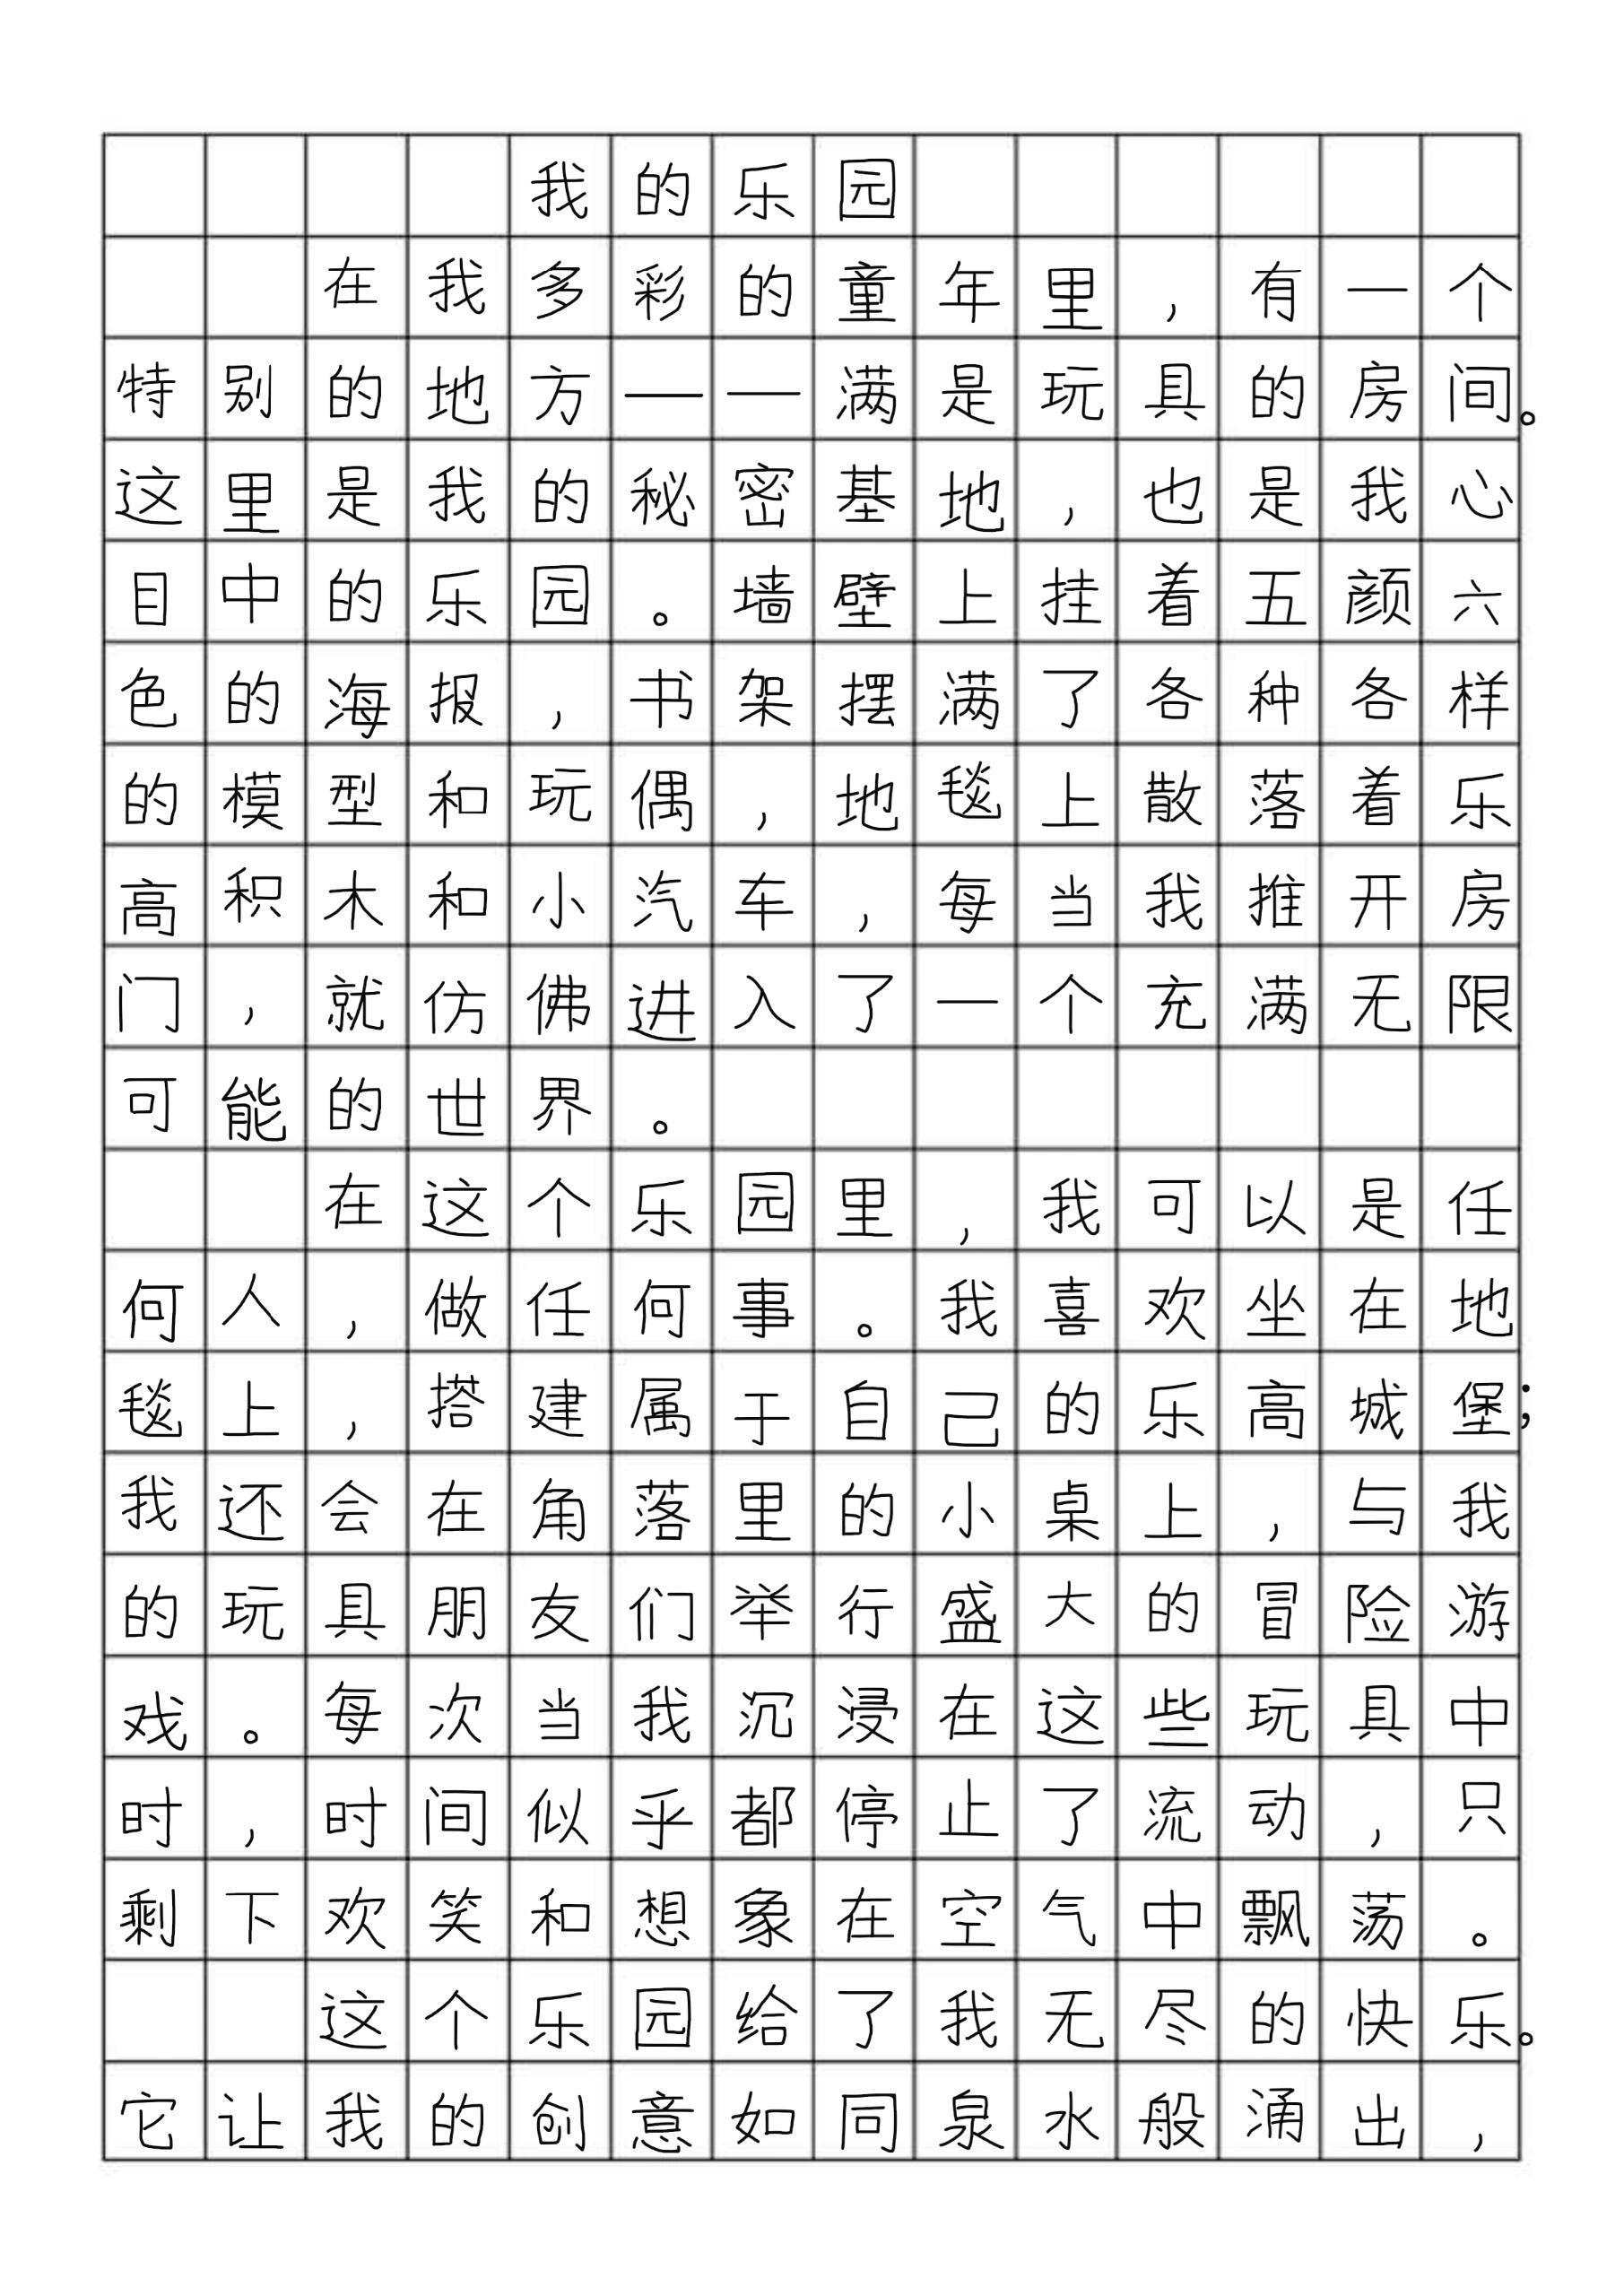 我的乐园
在我多彩的童年里，有一个
特别的地方——满是玩具的房间。
这里是我的秘密基地，也是我心
目中的乐园。墙壁上挂着五颜六
色的海报，书架摆满了各种各样
的模型和玩偶，地毯上散落着乐
高积木和小汽车，每当我推开房
门，就仿佛进入了一个充满无限
可能的世界。
在这个乐园里，我可以是任
何人，做任何事。我喜欢坐在地
毯上，搭建属于自己的乐高城堡；
我还会在角落里的小桌上，与我
的玩具朋友们举行盛大的冒险游
戏。每次当我沉浸在这些玩具中
时，时间似乎都停止了流动，只
剩下欢笑和想象在空气中飘荡。
这个乐园给了我无尽的快乐。
它让我的创意如同泉水般涌出，